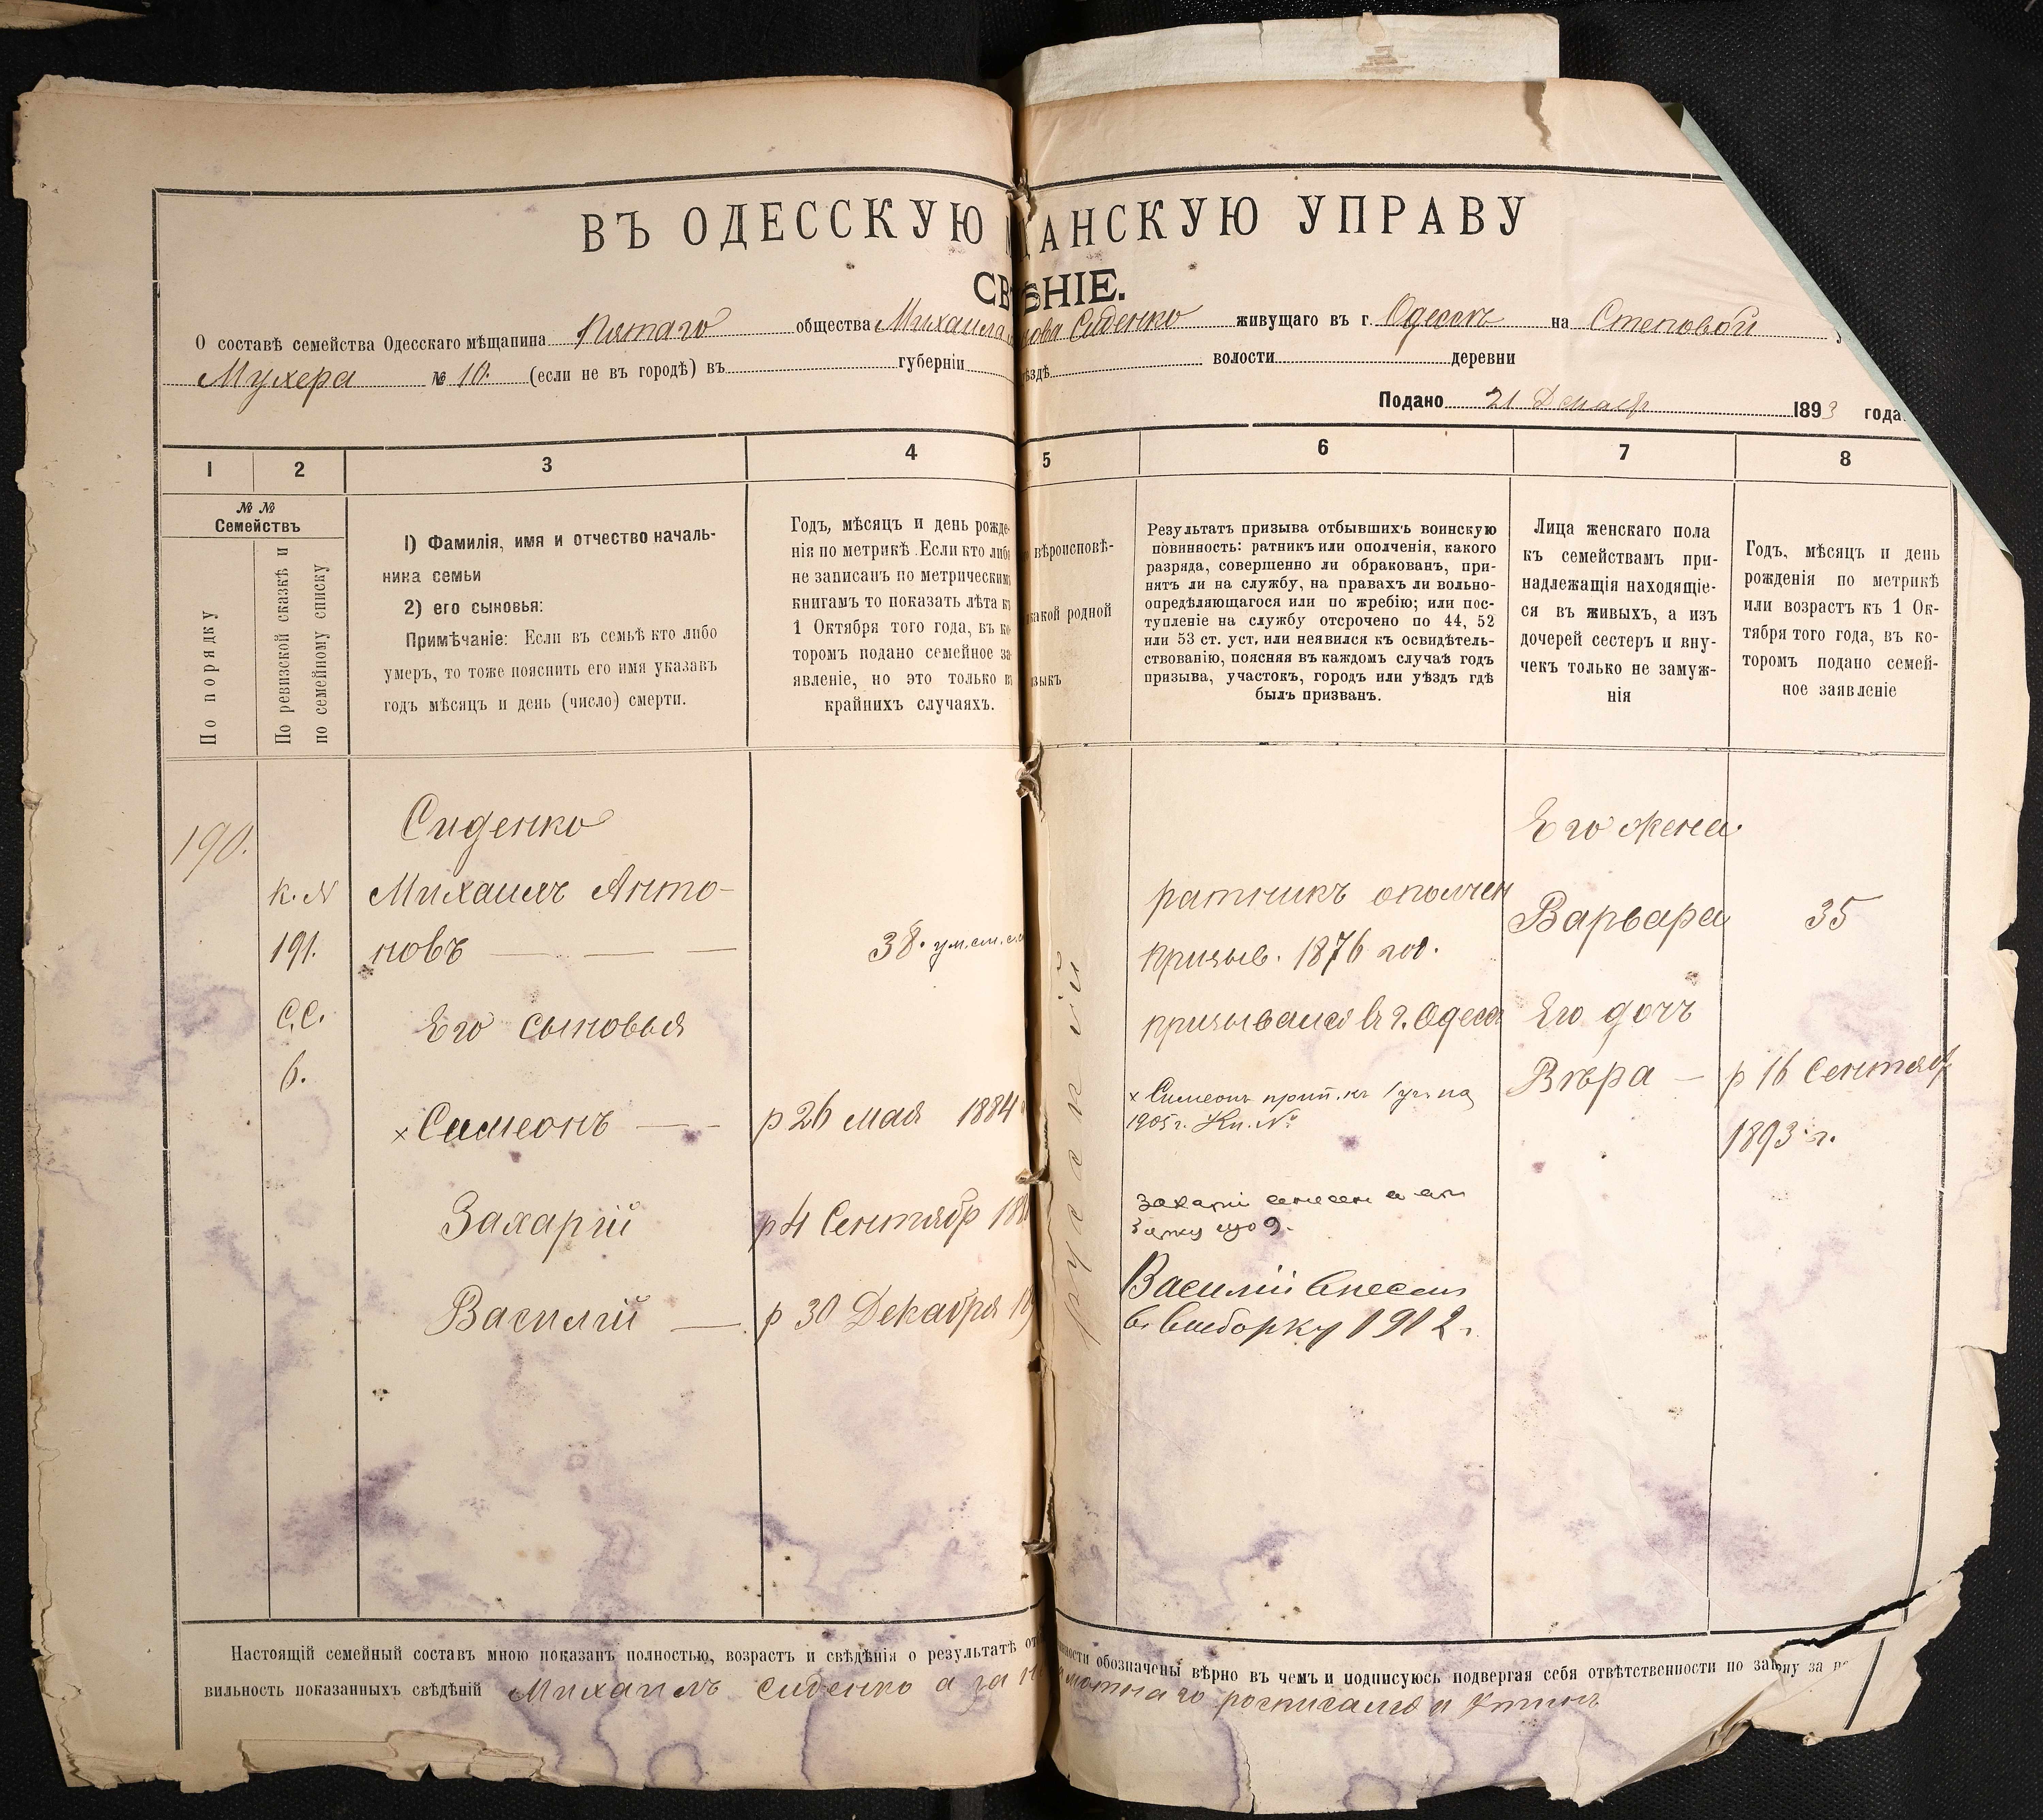 ВЪ ОДЕССКУЮ ЩАНСКУЮ УПРАВУ
СВ ѢНІЕ.
О составѣ семейства Одесскаго мѣщанина Пятаго общества Михаила нова Сиденко живущаго въ г. Одессѣ на Степовой
Мухера № 10. (если не въ городѣ) въ губерніи ѣздѣ волости деревни
Подано 21 Декабр 1893 года.
1 2 3 4 5 6 7 8
№ № Семействъ
По порядку
По ревизской сказкѣ и
по семейному списку
1) Фамилія, имя и отчество началь-
ника семьи
2) его сыновья:
Примѣчаніе: Если въ семьѣ кто либо
умеръ, то тоже пояснить его имя указавъ
годъ мѣсяцъ и день (число) смерти.
Годъ, мѣсяцъ и день рожде-
нія по метрикѣ. Если кто либо
не записанъ по метрическимъ
книгамъ то показать лѣта къ
1 Октября того года, въ ко-
торомъ подано семейное за-
явленіе, но это только въ
крайнихъ случаяхъ.
вѣроисповѣ-
какой родной
языкъ
Результатъ призыва отбывшихъ воинскую
повинность: ратникъ или ополченія, какого
разряда, совершенно ли обракованъ, при-
нятъ ли на службу, на правахъ ли вольно-
опредѣляющагося или по жребію; или пос-
тупленіе на службу отсрочено по 44, 52
или 53 ст. уст, или неявился къ освидѣтель-
ствованію, поясняя въ каждомъ случаѣ годъ
призыва, участокъ, городъ или уѣздъ гдѣ
былъ призванъ.
Лица женскаго пола
къ семействамъ при-
надлежащія находящіе-
ся въ живыхъ, а изъ
дочерей сестеръ и вну-
чекъ только не замуж-
нія
Годъ, мѣсяцъ и день
рожденія по метрикѣ
или возрастъ къ 1 Ок-
тября того года, въ ко-
торомъ подано семей-
ное заявленіе
190.
к. №
191.
С.С.
6.
Сиденко
Михаилъ Анто-
новъ
Его сыновья
× Симеонъ
Захарій
Василій
38.
р 26 мая 1884
р 4 Сентябр 18
р 30 Декабря 1
русскій
ратникъ ополчен
призыв. 1876 год.
призывался въ г. Одесс
× Симеонъ прип. къ 1 уч. на
1905 г. Кн. №
Захарій
Василій внесенъ
въ выборку 1912 г.
Его жена
Варвара
Его дочь
Вѣра —
35
р 16 Сентябр
1893 г.
Настоящій семейный составъ мною показанъ полностью, возрастъ и свѣдѣнія о результатѣ от нности обозначены вѣрно въ чемъ и подписуюсь подвергая себя отвѣтственности по закону за не
вильность показанныхъ свѣдѣній Михаилъ Сиденко а за н мотнаго росписался